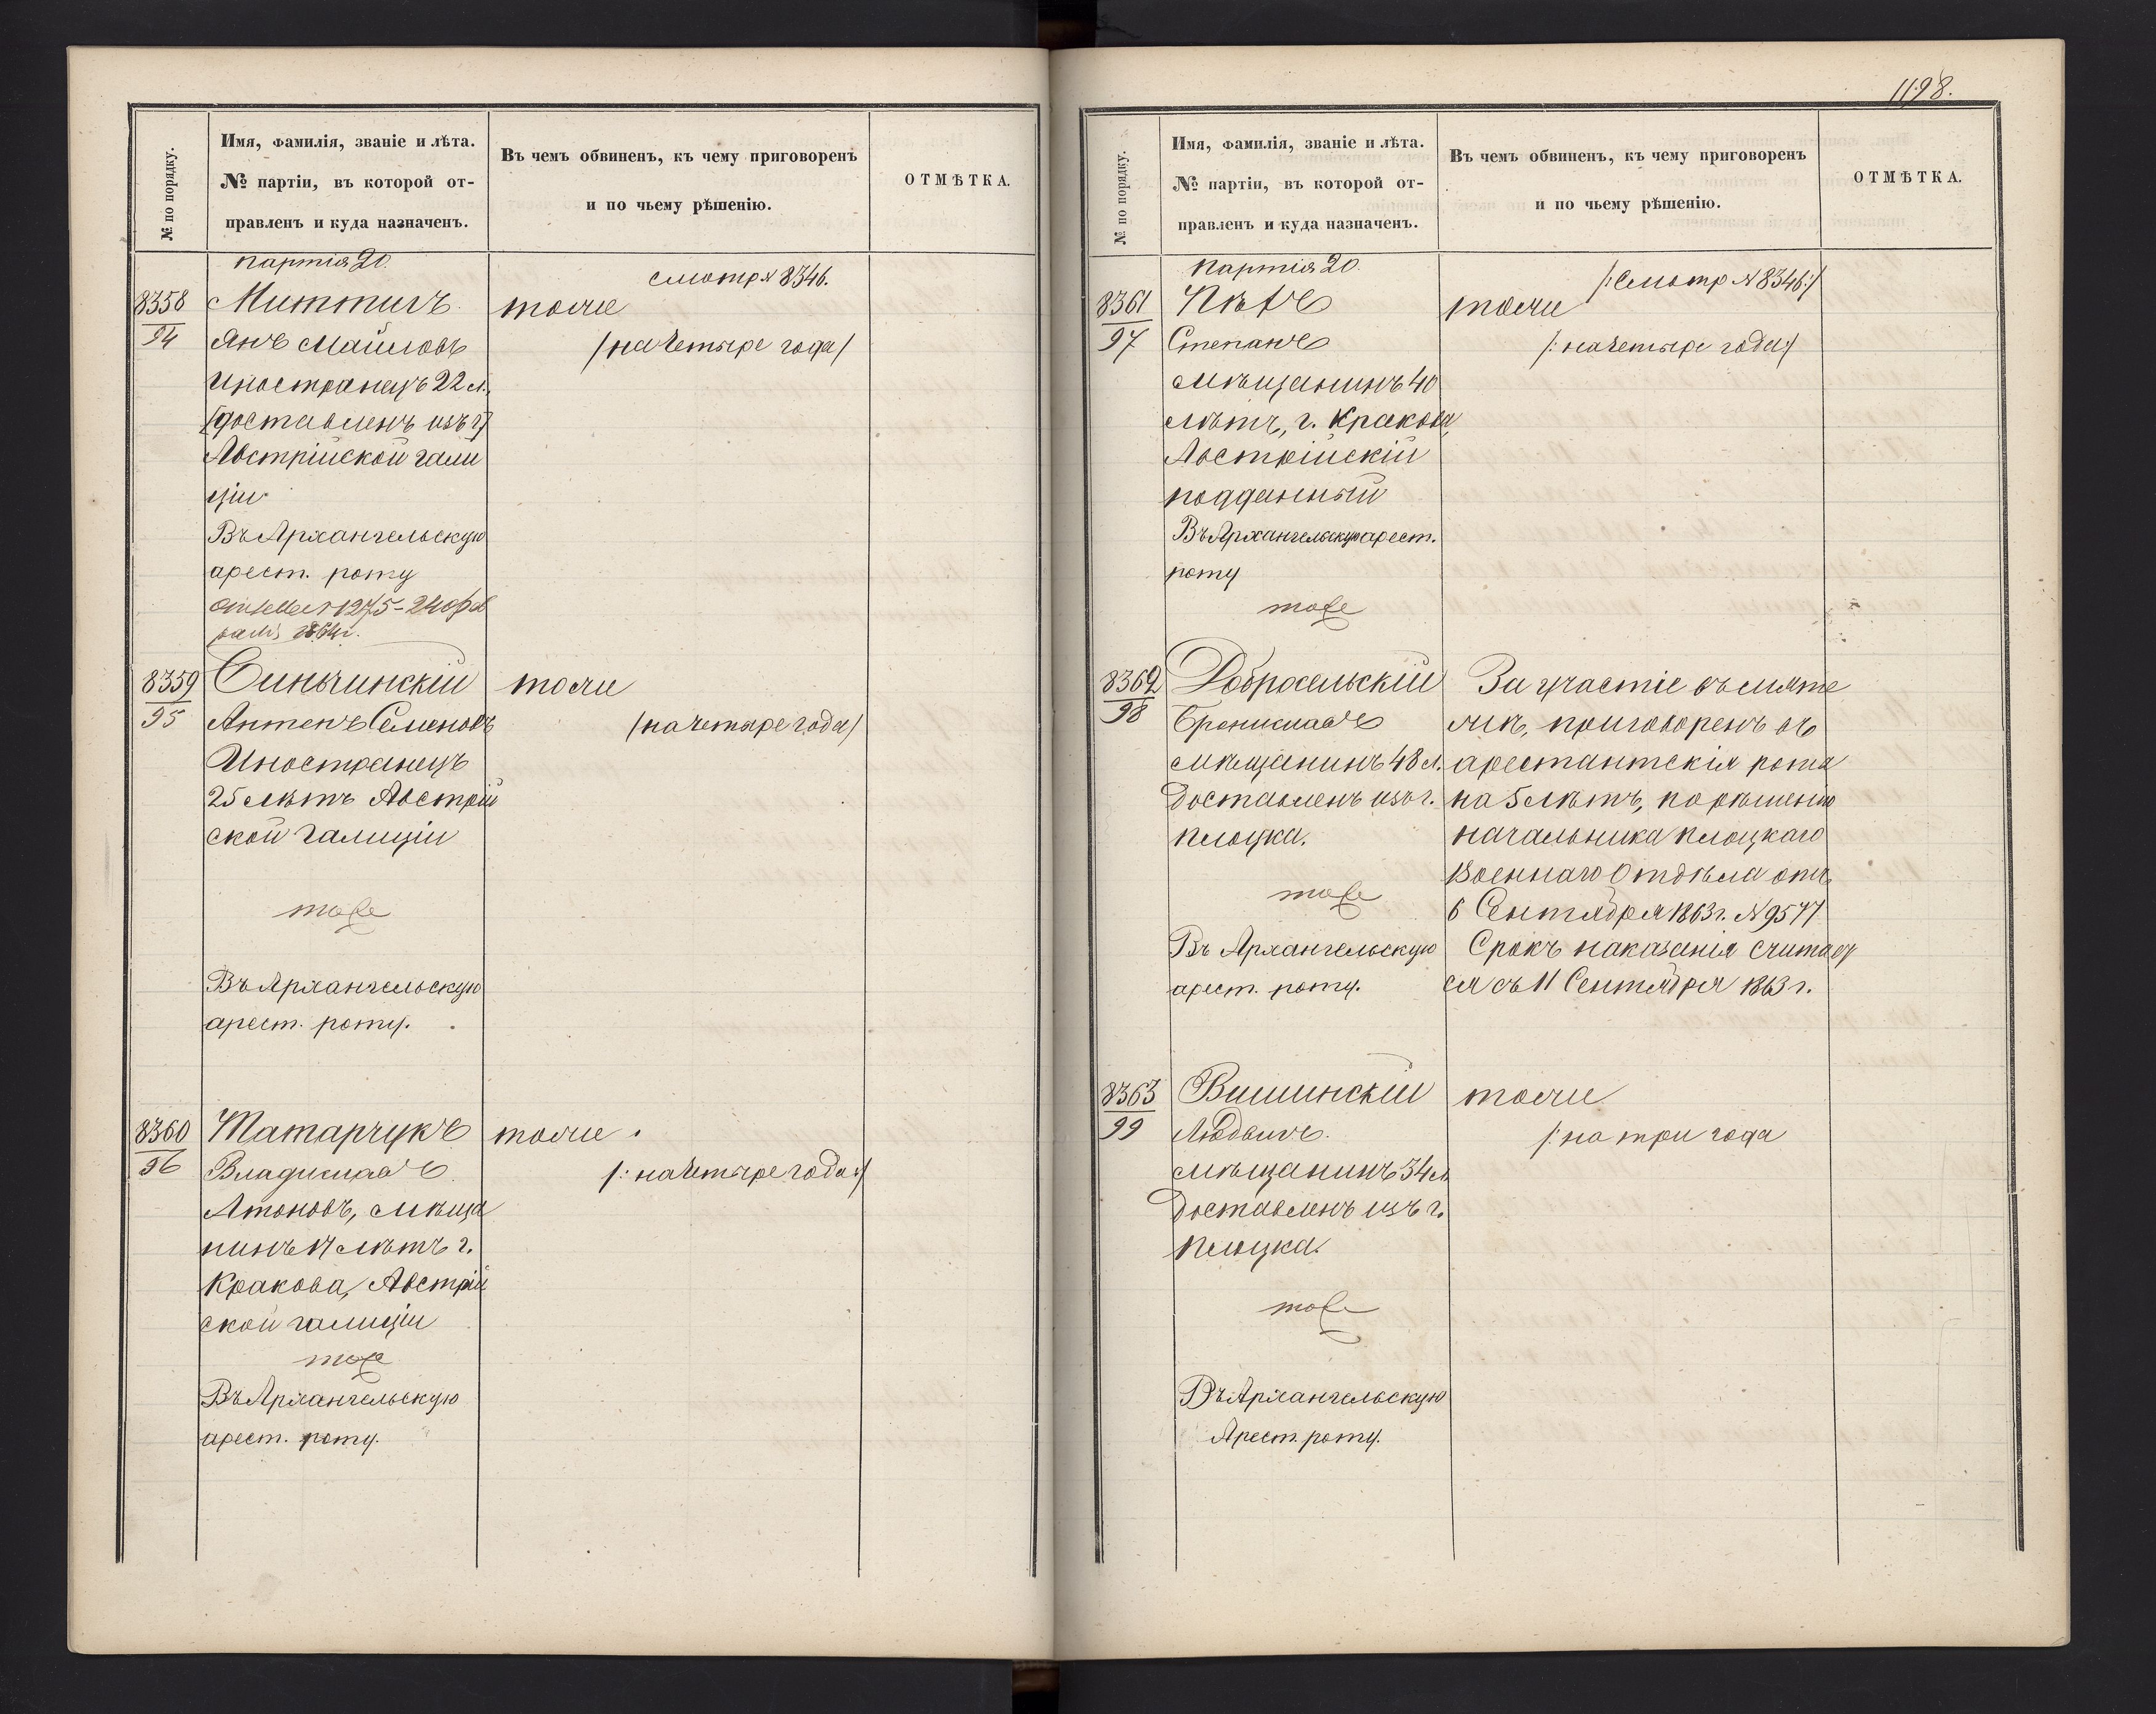 № по порядку.
Имя, фамилія, званіе и лѣта.
№ партіи, въ которой от-
правленъ и куда назначенъ.
Въ чемъ обвиненъ, къ чему приговоренъ
и по чьему рѣшенію.
ОТМѢТКА.
партія 20.
смотр № 8346.
8358
94
тоже
Янъ
/на четыре года/
Иностранецъ 22 л.
/доставленъ изъ г/
Австрійской гали
ціи
Въ Архангельскую
арест. роту
1275 - 24 фев
раля 1864 г.
8359
95
тоже
Антонъ Семеновъ
/на четыре года/
Иностранецъ
25 лѣтъ Австрій
ской Галиціи
тоже
Въ Архангельскую
арест. роту.
8360
96
Татарчукъ
тоже
Владиславъ
/: на четыре года :/
Атоновъ, мѣща
нинъ 17 лѣтъ г.
Кракова, Австрій
ской галиціи
тоже
Въ Архангельскую
арест. роту.
1198.
№ по порядку.
Имя, фамилія, званіе и лѣта.
№ партіи, въ которой от-
правленъ и куда назначенъ.
Въ чемъ обвиненъ, къ чему приговоренъ
и по чьему рѣшенію.
ОТМѢТКА.
партія 20.
/: Смотр № 8346 :/
8361
97
тоже
Степанъ
/: на четыре года :/
мѣщанинъ 40
лѣтъ, г. Кракова,
Австрійскій
подданный
Въ Архангельскую арест.
роту
тоже
8362
98
Добросельскій
За участіе въ мяте
Брониславъ
жѣ, приговоренъ въ
мѣщанинъ 48 л.
арестантскія роты
доставленъ изъ г.
на 5 лѣтъ, по рѣшенію
Плоцка.
начальника Плоцкаго
Военнаго Отдѣла отъ
тоже
6 Сентября 1863 г. № 9577
Въ Архангельскую
Срокъ наказанія считает
арест. роту.
ся съ 11 Сентября 1863 г.
8363
99
Вишинскій
тоже
Людвигъ.
/: на три года
мѣщанинъ 34 л.
доставленъ изъ г.
Плоцка.
тоже
Въ Архангельскую
Арест. роту.